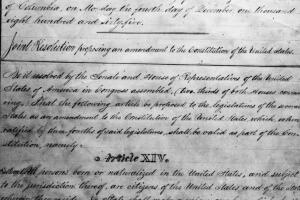 of Columbia, on Monday the fourth day of December one thousand
eight hundred and sixty-five.
Joint Resolution proposing an amendment to the Constitution of the United States.
Be it resolved by the Senate and House of Representatives of the United
States of America in Congress assembled, (two thirds of both Houses concur-
ring,) That the following article be proposed to the legislatures of the several
States as an amendment to the Constitution of the United States, which, when
ratified by three fourths of said legislatures, shall be valid as part of the Con-
stitution, namely:
Article XIV.
persons born or naturalized in the United States, and subject
to the jurisdiction thereof, are citizens of the United States and of the State